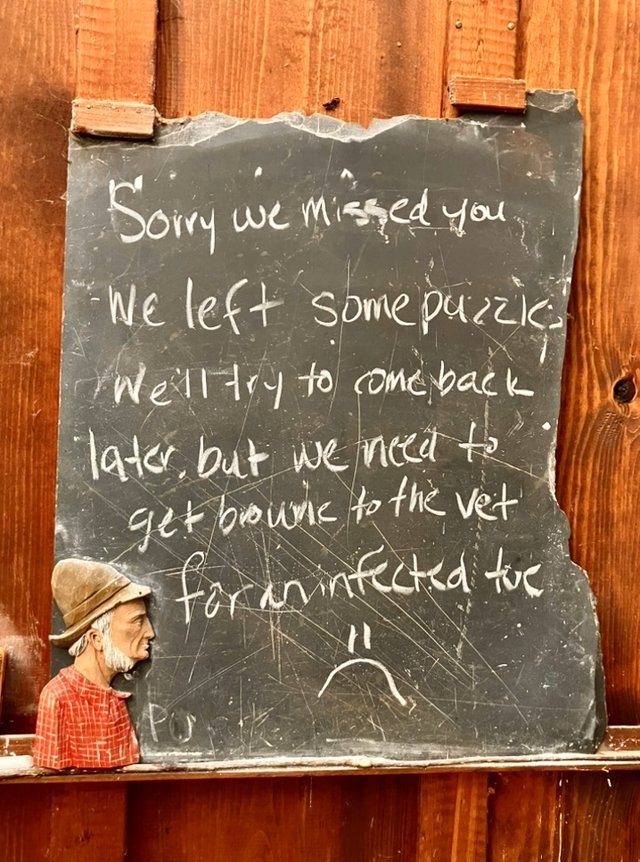 Sorry we missed you
We left some puzzles
We'll try to come back
later, but we need to
get brownie to the vet
for an infected toe